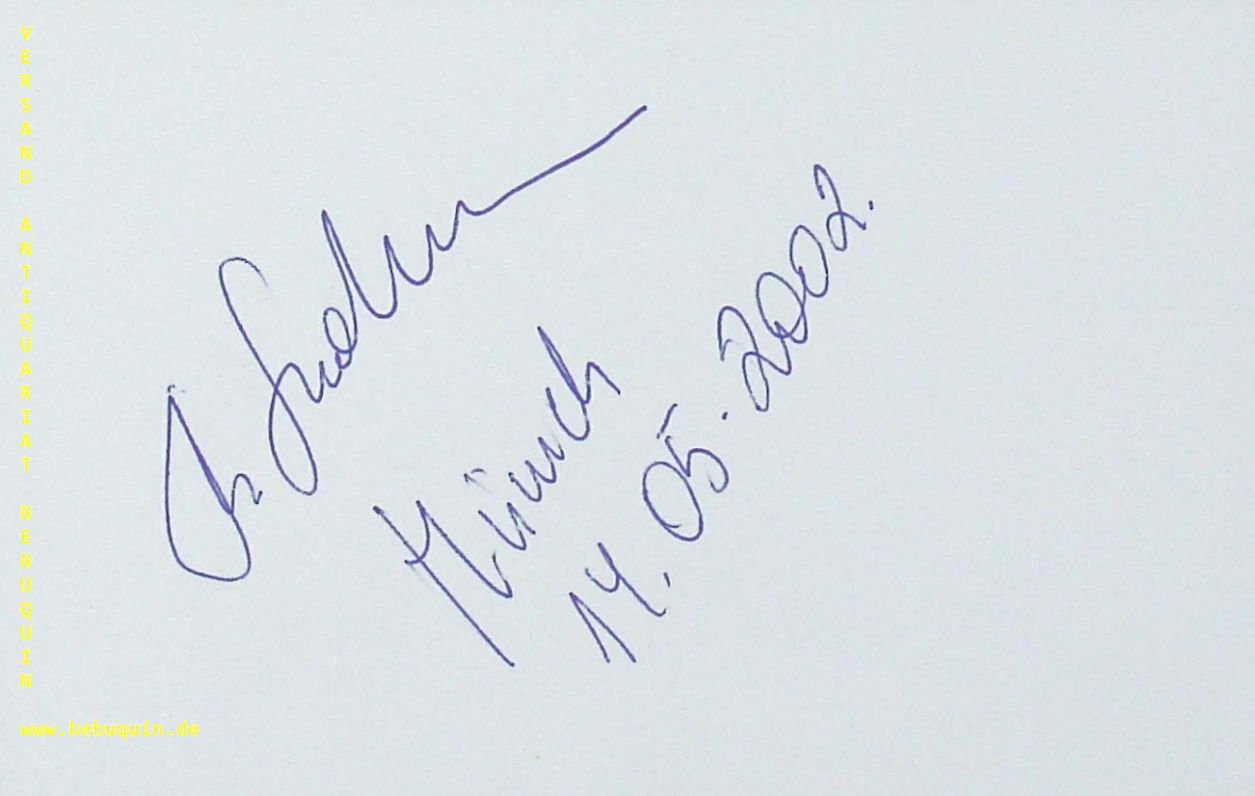 VERSAND ANTIQUARIAT BEBUQUIN
Münch
14.05.2002.
www.bebuquin.de